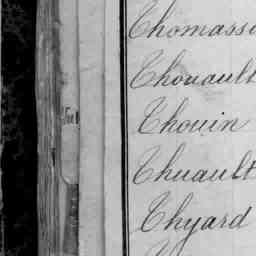 Thomass
Thouault
Thouin
Thuault
Thyard